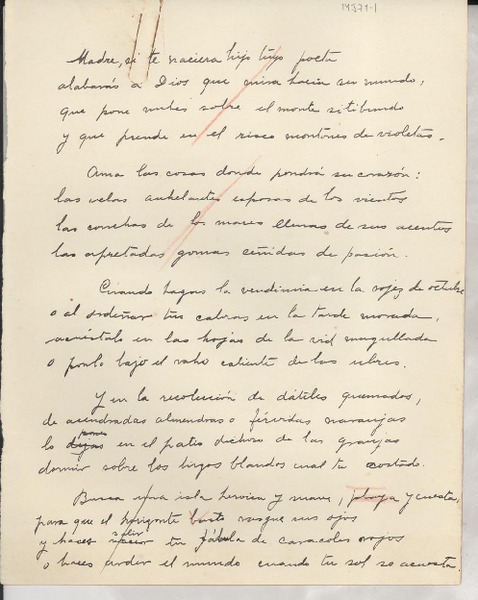 14371-1
Madre, si te naciera hijo tuyo poeta
alabarás a Dios que mira hacia su mundo,
que pone nubes sobre el monte sitibundo
y que prende en el risco montones de violetas.
Ama las cosas donde pondrá su corazón:
las velas anhelantes esposas de los vientos
las conchas de los mares llenas de sus acentos
las apretadas gomas ceñidas de pasión.
Cuando hagas la vendimia en la rojez de octubre
o al ordeñar tus cabras en la tarde morada,
acuéstalo en las hojas de la vid magullada
o ponlo bajo el vaho caliente de las ubres.
Y en la recolección de dátiles quemados,
de acendradas almendras o férvidas naranjas
pones
lo dejas en el patio dichoso de las granjas
dormir sobre los higos blandos cual tu costado.
Busca una isla heroica y suave, playa y cuesta,
para que el horizonte vasto rasgue sus ojos
salir
y haces nacer tu fábula de caracoles rojos
o haces arder el mundo cuando tu sol se acuesta.